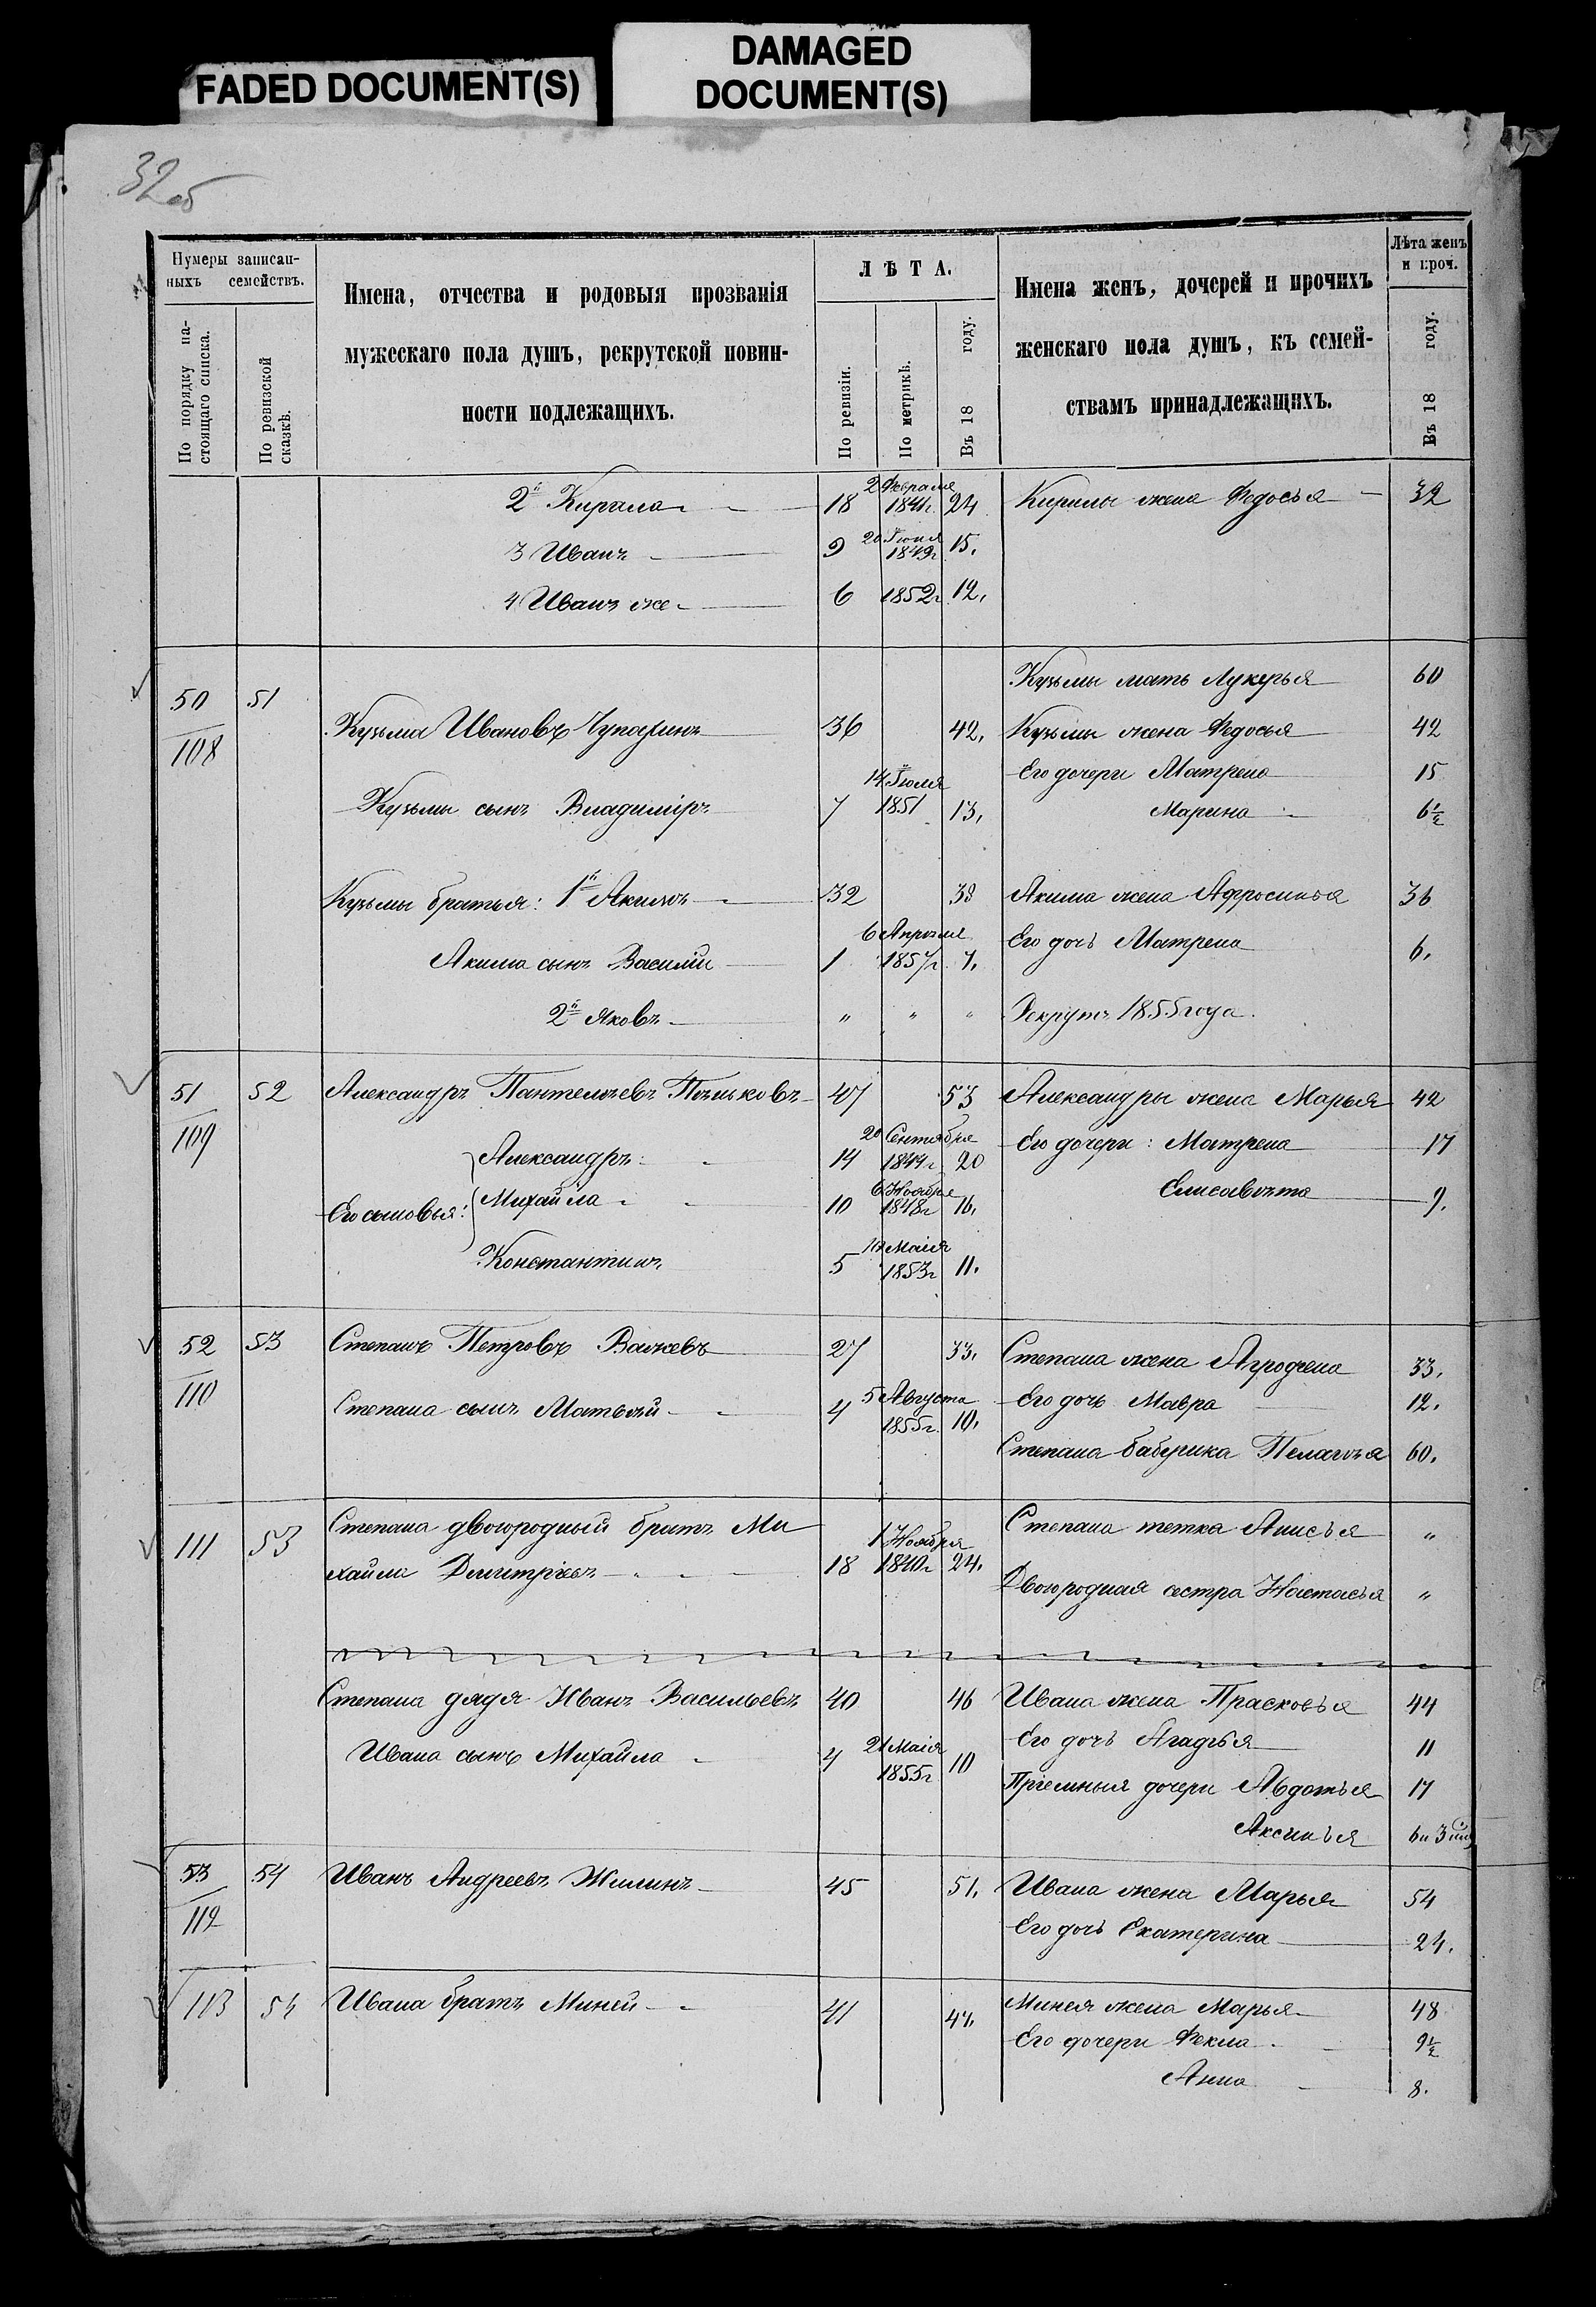 FADED DOCUMENT(S)
DAMAGED
DOCUMENT(S)
32об
Нумеры записан-
ныхъ семействъ.
По порядку на-
стоящаго списка.
По ревизской
сказкѣ.
Имена, отчества и родовыя прозванія
мужескаго пола душъ, рекрутской повин-
ности подлежащихъ.
ЛѢТА.
По ревизіи.
По метрикѣ.
Въ 18 году.
Имена женъ, дочерей и прочихъ
женскаго пола душъ, къ семей-
ствамъ принадлежащихъ.
Лѣта женъ
и проч.
Въ 18 году.
2й Кирила 18 2 Февраля 1841г. 24 Кирилы жена Федосья 32
3 Иванъ 9 20 Іюня 1849г 15.
4 Иванъ же 6 1852г 12.
Кузьмы мать Лукерья 60
50/108 51 Кузьма Ивановъ Чупахинъ 36 42. Кузьмы жена Федосья 42
Его дочери Матрена 15
Кузьмы сынъ Владиміръ 7 14 Іюля 1851 13. Марина 6½
Кузьмы братья: 1й Акимъ 32 38 Акима жена Афросинья 36
Акима сынъ Василій 1 6 Апрѣля 1857г. 7. Его дочь Матрена 6.
2й Яковъ " " " Рекрутъ 1855 года.
51/109 52 Александръ Пантелѣевъ 47 53 Александры жена Марья 42
Его сыновья: Александръ 14 20 Сентября 1844г 20 Его дочери: Матрена 17
Михайла 10 6 Ноября 1848г 16. Елисавѣта 9.
Константинъ 5 Маія 1853г 11.
52/110 53 Степанъ Петровъ 27 33. Степана жена Агрофена 33.
Степана сынъ Матвѣй 4 5 Августа 1855г. 10. Его дочь Мавра 12.
Степана бабушка Пелагѣя 60.
111 53 Степана двоюродный братъ Ми
хайла Дмитріевъ 18 1 Ноября 1840г 24. Степана тетка Анисья "
Двоюродная сестра Настасья "
Степана дядя Иванъ Васильевъ 40 46 Ивана жена Прасковья 44
Ивана сынъ Михайла 4 21 Маія 1855г 10 Его дочь Агафья 11
Пріемныя дочери Авдотья 17
Аксинья 6 и 3 мѣс
53/112 54 Иванъ Андреевъ Жилинъ 45 51. Ивана жена Марья 54
Его дочь Екатерина 24.
113 54 Ивана братъ Миней 41 47. Минея жена Марья 48
Его дочери Фекла 9½
Анна 8.